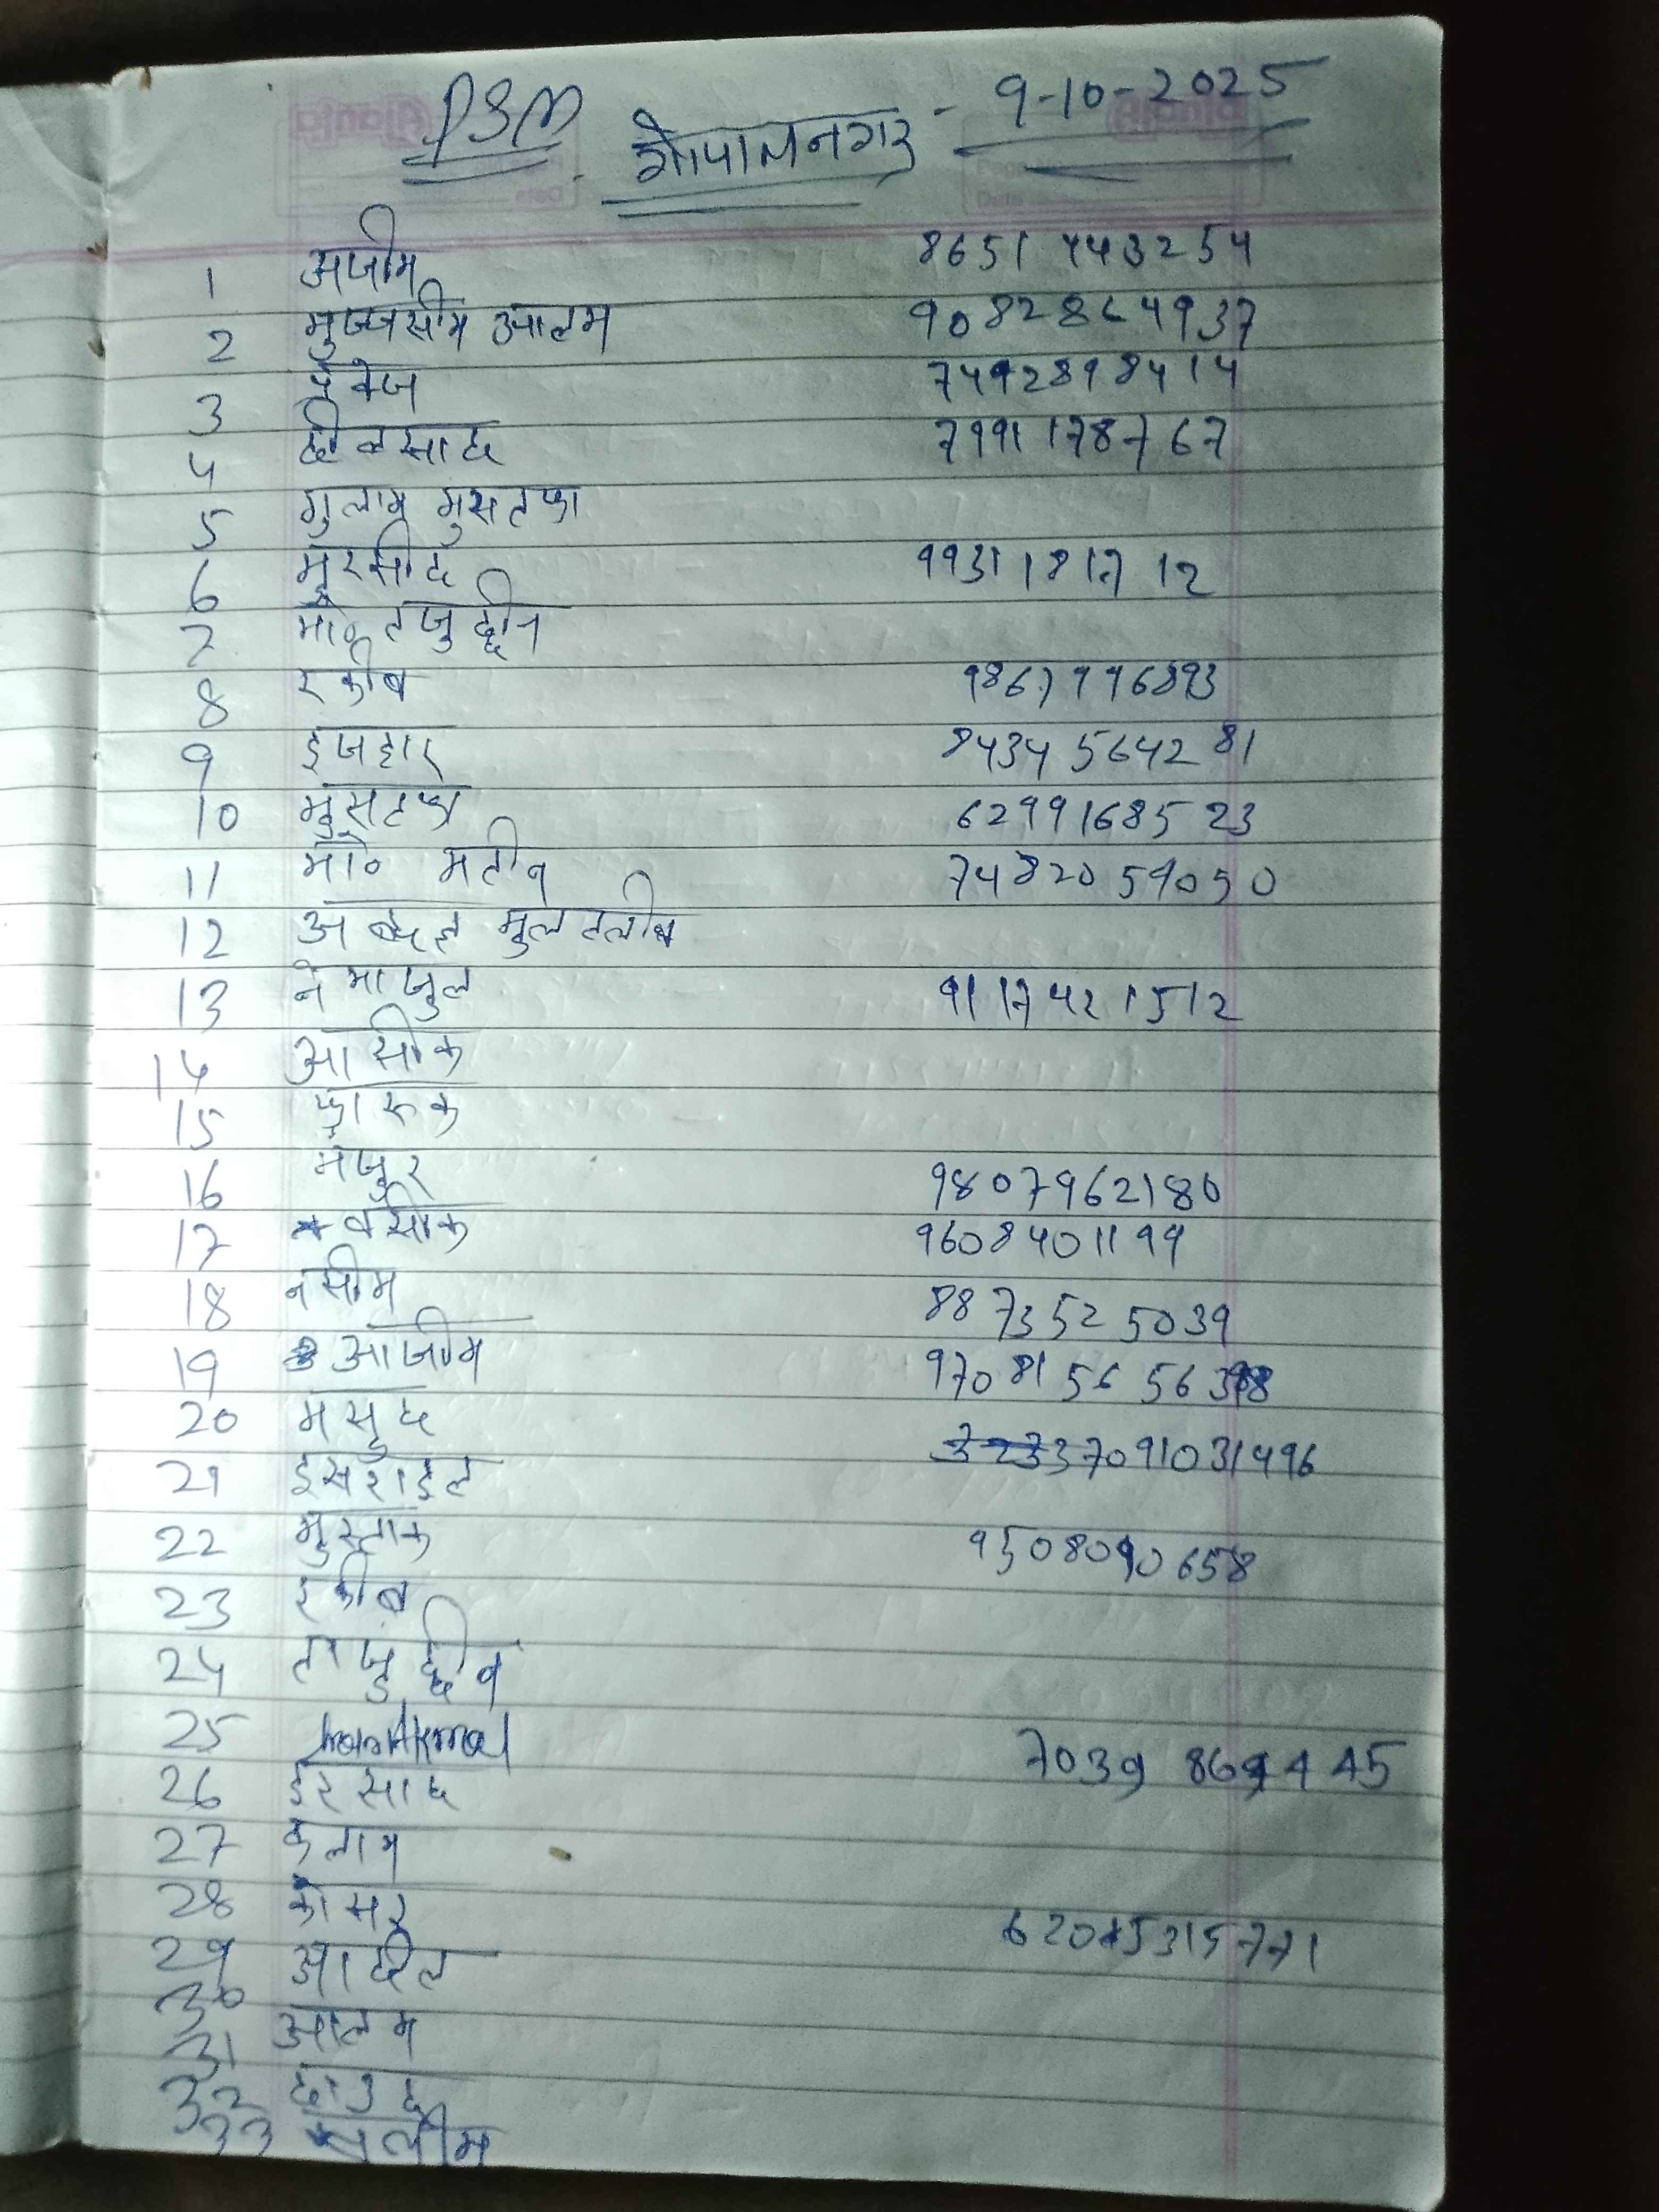 PSM. गोपालनगर - 9-10-2025
1 अजीम 86517443254
2 मुज्जसीम आलम 9082864937
3 7492898414
4 दीलसाद 7991178767
5 गुलाम मुसतफा
6 मुरसीद 9931181712
7 मो० तजुद्दीन
8 रकीब 9867996893
9 इजहार 84345642 81
10 मुसतफा 6299168523
11 मो० मतीन 7482059050
12 मुलतलीब
13 नेमाजुल 9117421512
14 आसीक
15 फारूक
16 मंजुर 98079962180
17 वसीक 9608401199
18 नसीम 8873525039
19 आजीम
20 मसुद
21 इसराइल 7091031496
22 मुस्ताक 9508090658
23 रकीब
24 ताजुद्दीन
25
26 इरसाद
27 कलाम
28 कोसर
29 आदील
30 आलम
31 दाउद
32
33 सलीम